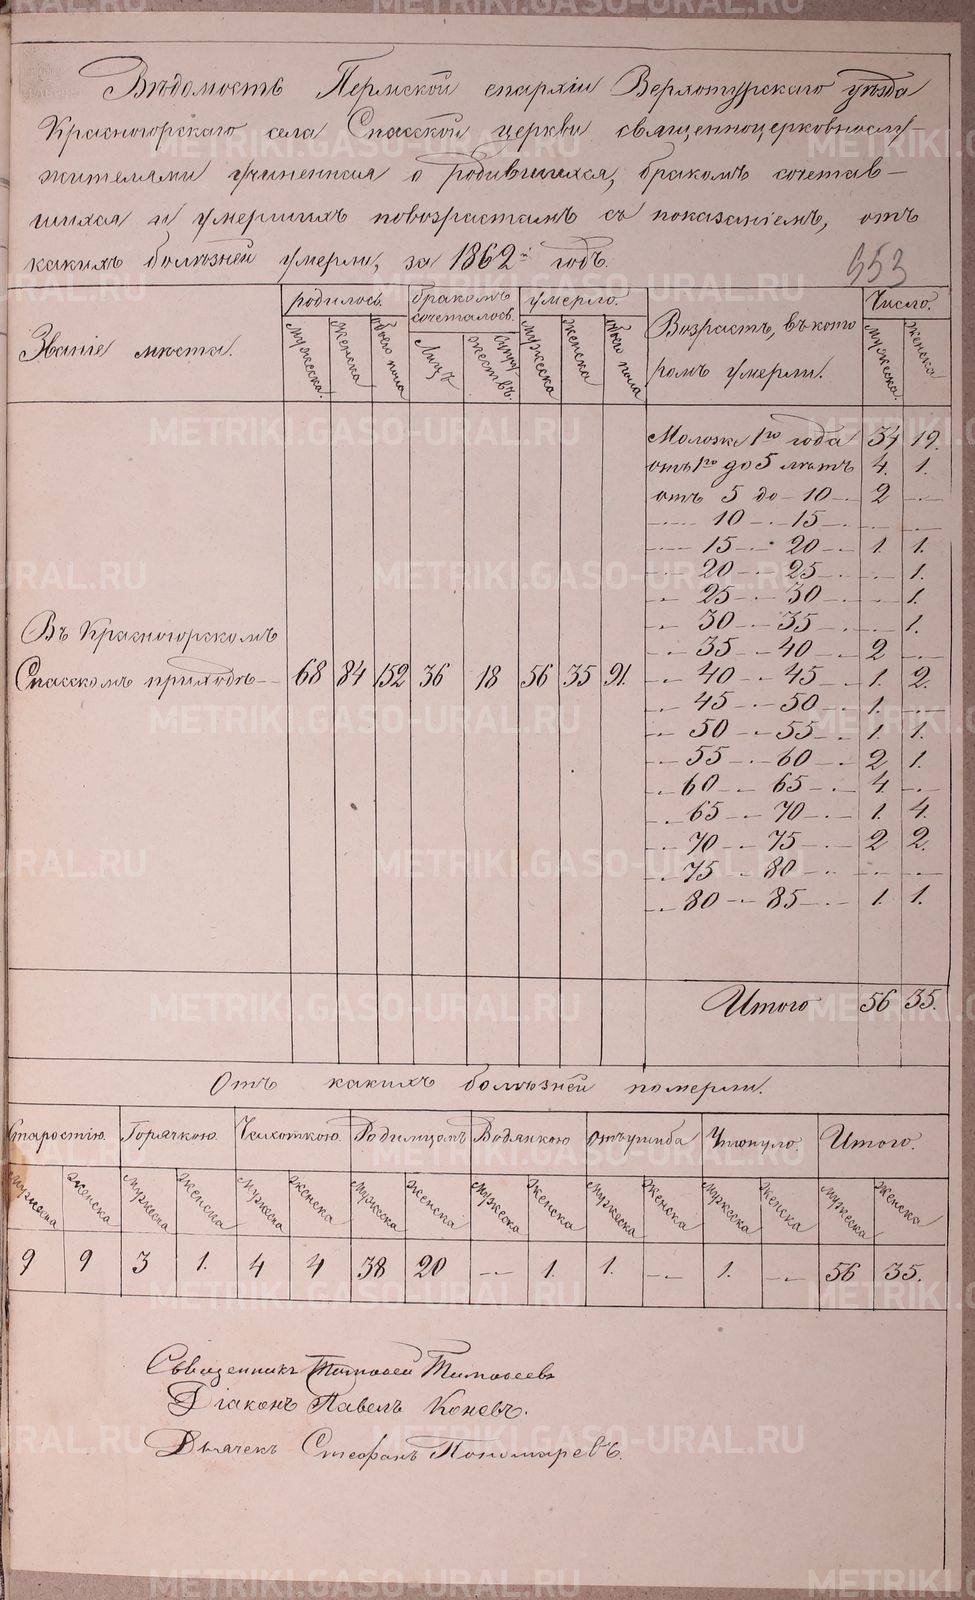 Вѣдомость Пермской епархіи Верхотурскаго уѣзда
Красногорскаго села Спасской церкви священноцерковнослу-
жителями учиненная о родившихся, бракомъ сочетав-
шихся и умершихъ повозрастамъ съ показаніемъ, отъ
какихъ болѣзней умерли, за 1862й годъ.
653
Званіе мѣста.
родилось.
бракомъ сочеталось.
умерло.
Возрастъ, въ кото
ромъ умерли.
Число.
мужеска. женска обоего пола
Лицъ супружествъ.
мужеска женска обоего пола
мужеска. женска
Моложе 1го года 34 19.
отъ 1го до 5 лѣтъ 4. 1.
отъ 5 до 10 2 —
10 — 15 — —
15 — 20 1. 1.
20 — 25 — 1.
25 — 30 — 1.
30 — 35 — 1.
35 — 40 2 —
40 — 45 1. 2.
45 — 50 1. —
50 — 55 1. 1.
55 — 60 2 1.
60 — 65 4. —
65 — 70 1. 4.
70 — 75 2 2.
75 — 80 — —
80 — 85 1. 1.
Въ Красногорскомъ
Спасскомъ приходѣ — 68 84 152 36 18 56 35 91.
Итого 56 35.
Отъ какихъ болѣзней померли.
Старостію. Горячкою. Чахоткою. Родимцомъ Водянкою отъ ушиба Утонуло. Итого.
мужеска женска мужеска женска мужеска женска мужеска женска мужеска женска мужеска женска мужеска женска мужеска женска
9 9 3 1. 4 4 38 20 — 1. 1. — 1. — 56 35.
Священникъ Тимофей Тимофеевъ
Діаконъ Павелъ Коневъ.
Дьячекъ Стефанъ Пономаревъ.
METRIKI.GASO-URAL.RU